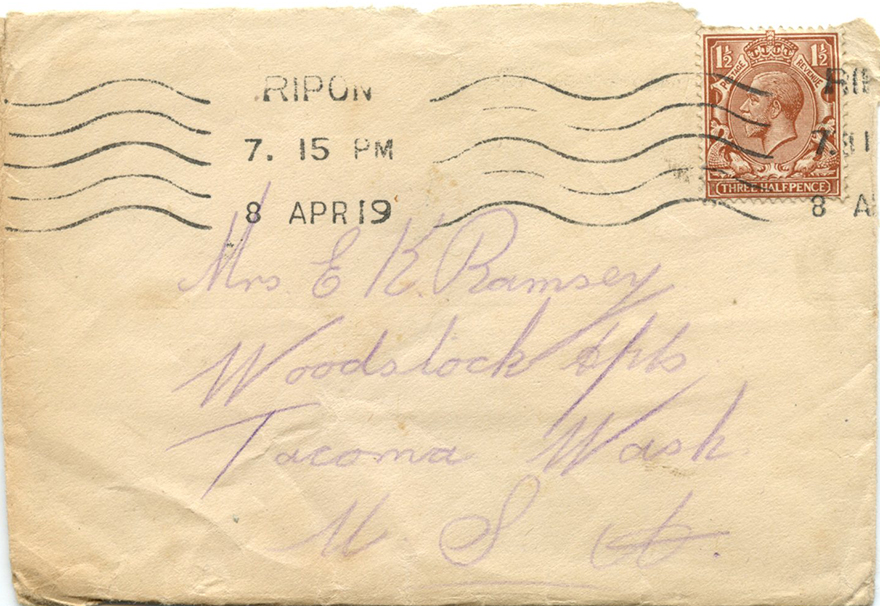 RIPON
7. 15 PM
8 APR 19
1½ 1½
POSTAGE REVENUE
THREE HALFPENCE
RIP
7. 1
8 A
Mrs E K. Ramsey
Woodstock Apts
Tacoma Wash.
U. S. A.